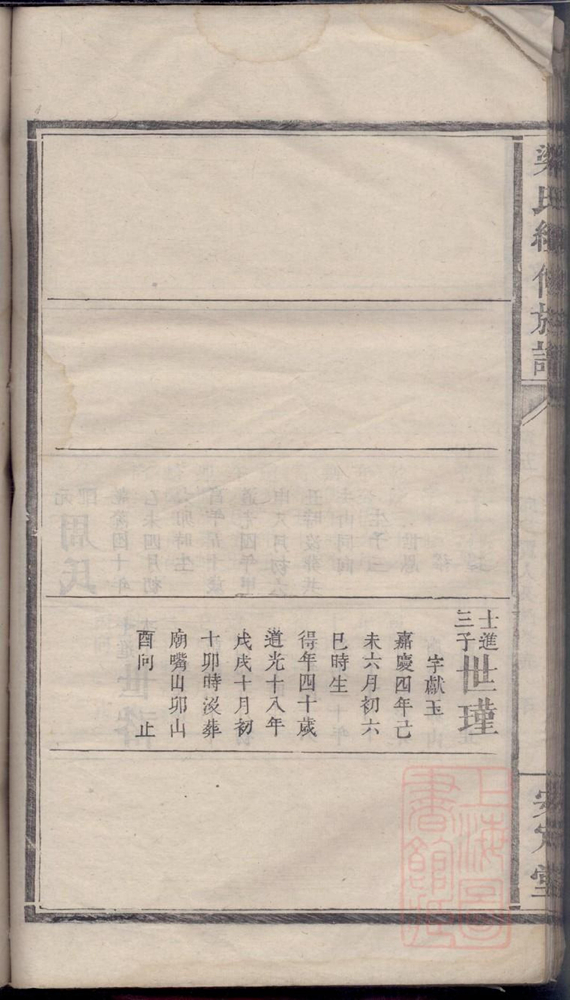 梁氏續修族譜
安定堂
士進
三子
世瑾
字獻玉
嘉慶四年己
未六月初六
巳時生
得年四十歲
道光十八年
戊戌十月初
十卯時沒葬
廟嘴山卯山
酉向 止
上海圖
書館藏